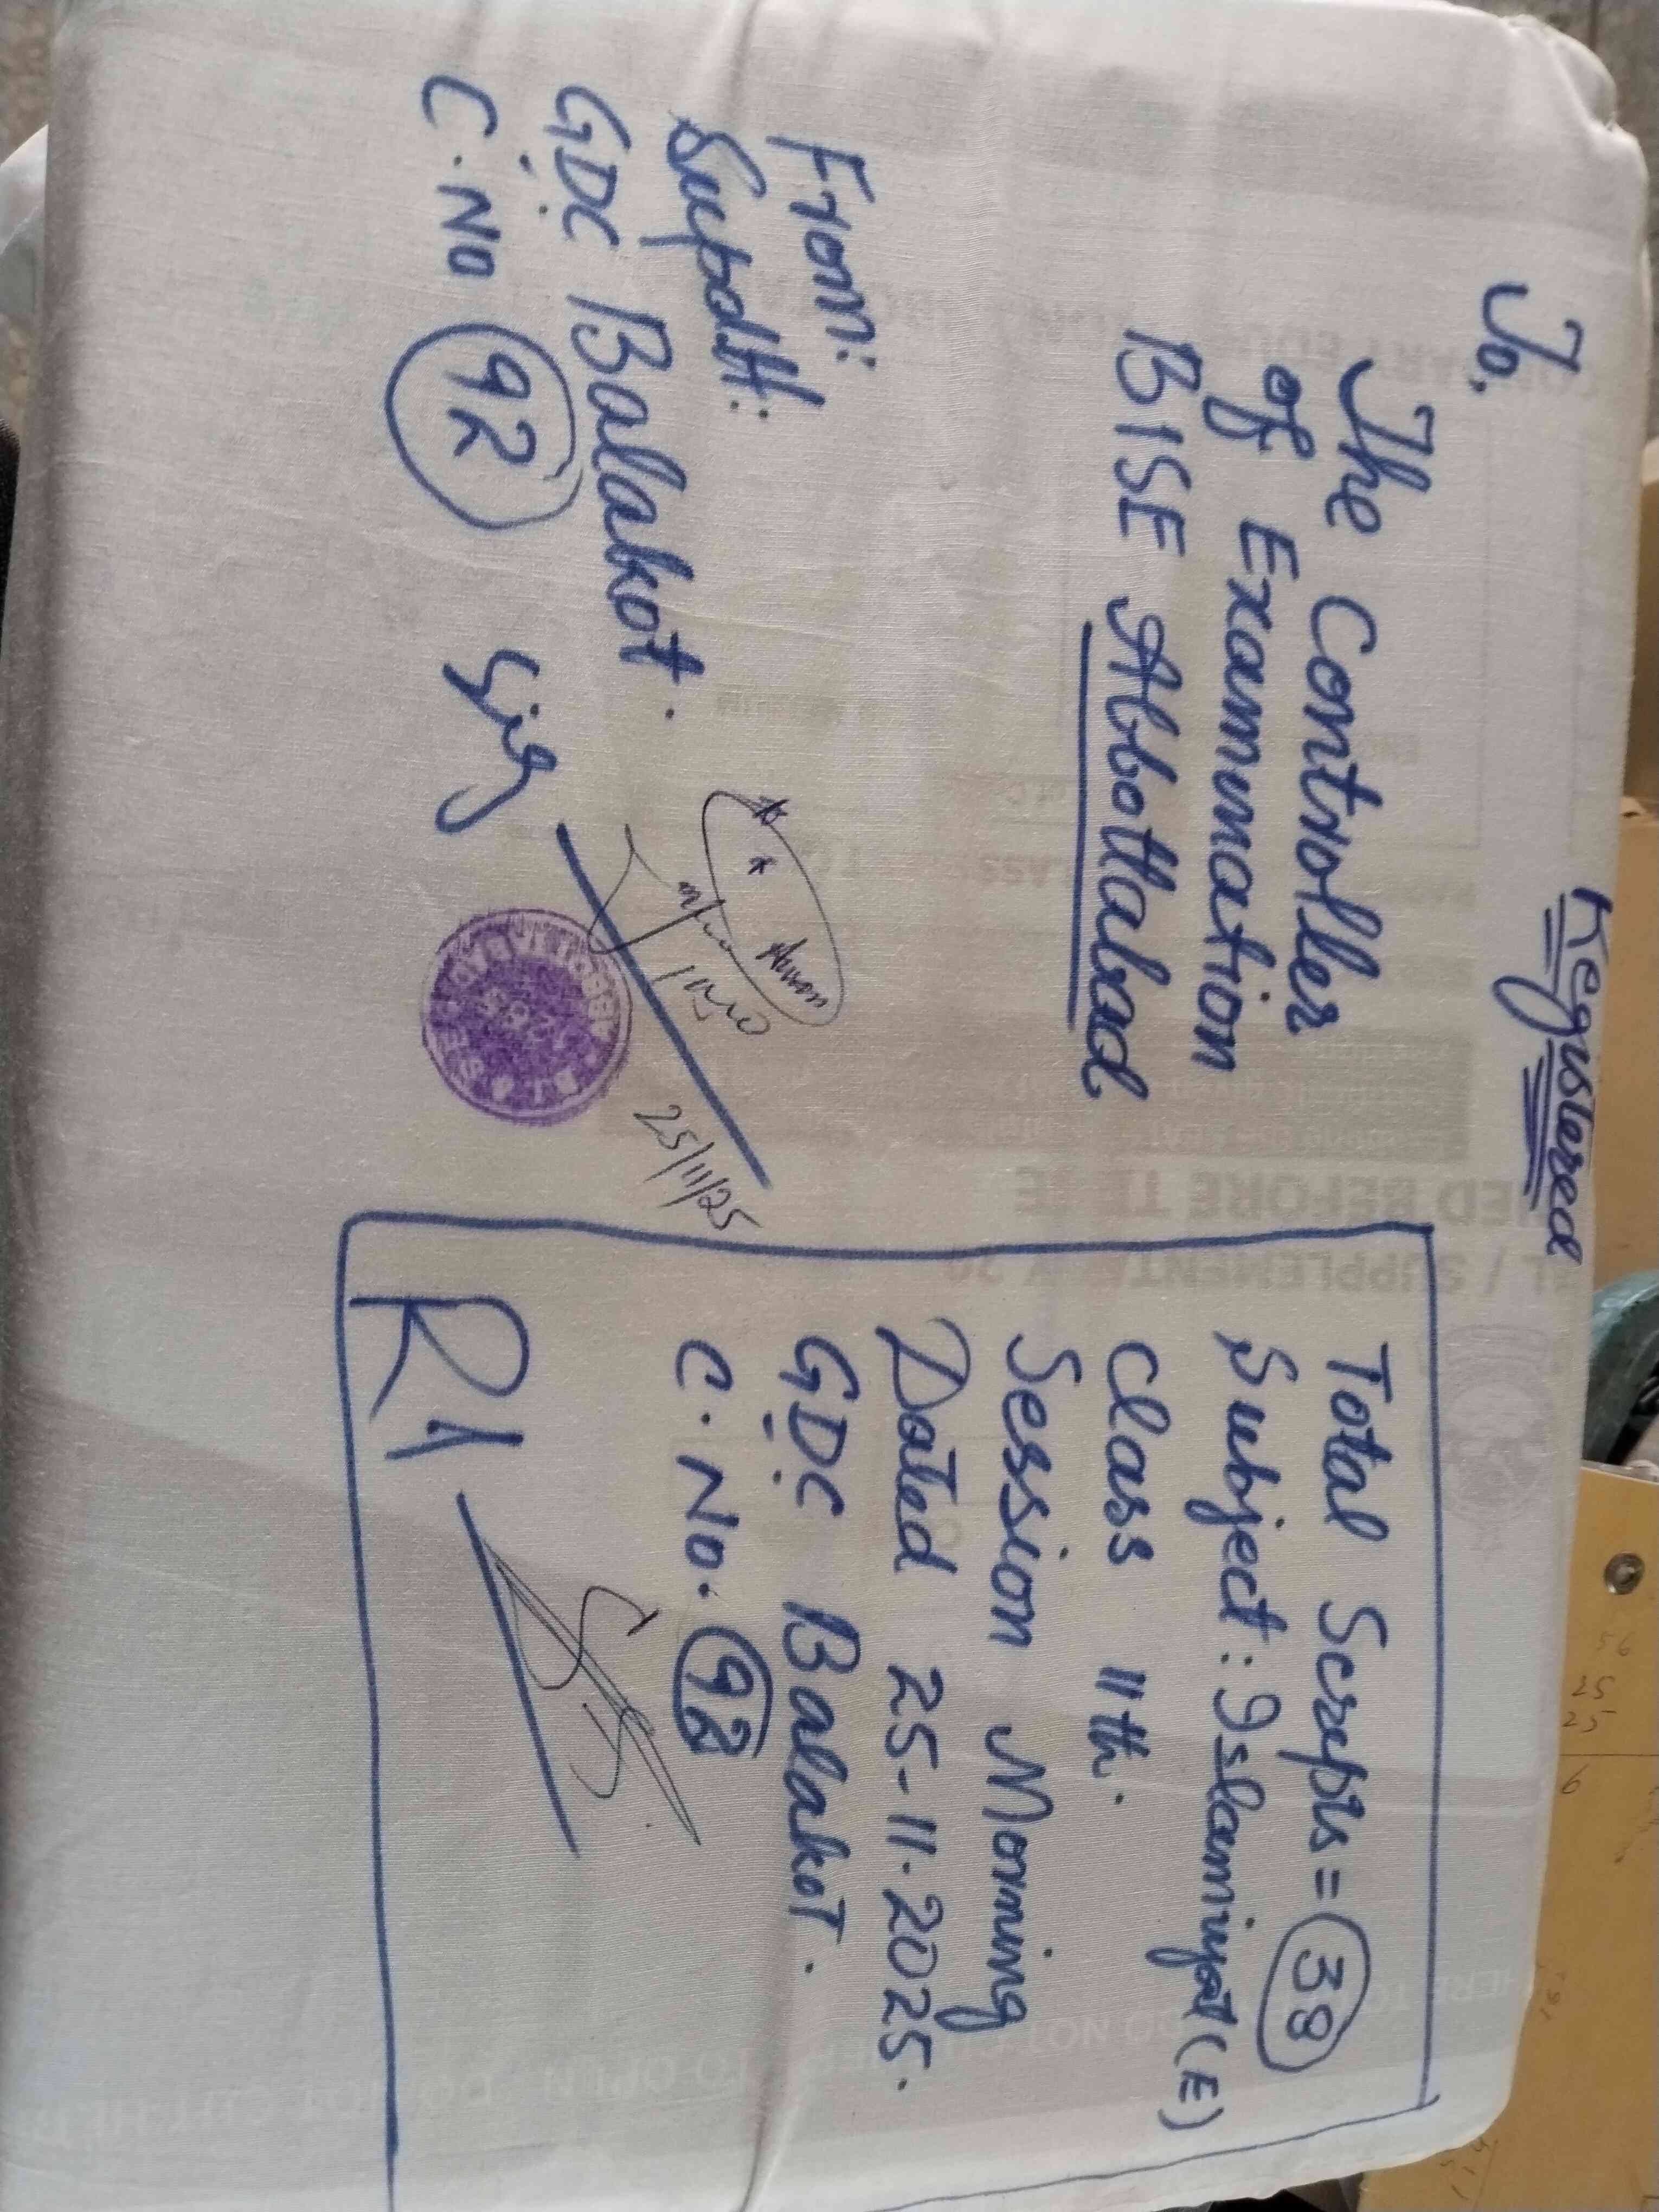 Registered
To,
The Controller
of Examination
BISE Abbottabad
From:
Supdtt:
G.D.C Balakot.
C.No 92
Sig
25/11/25
Total Scripts = 38
Subject: Islamiyat (E)
Class 11th.
Session Morning
Dated 25-11-2025.
G.D.C Balakot.
C.No. 92
RI